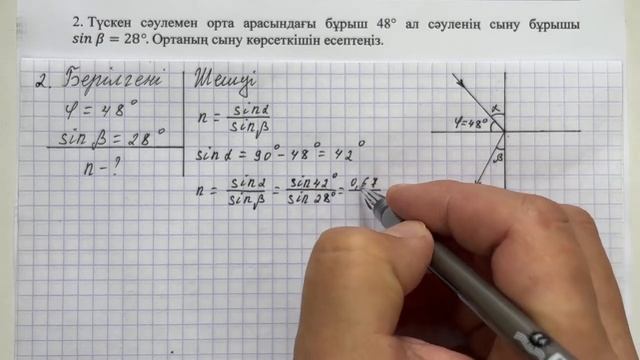 2. Түскен сәулемен орта арасындағы бұрыш 48° ал сәуленің сыну бұрышы
sin β = 28°. Ортаның сыну көрсеткішін есептеңіз.
2. Берілгені
φ = 48°
sin β = 28°
n - ?
Шешуі
n = sinα / sinβ
sin α = 90° - 48° = 42°
n = sinα / sinβ = sin42° / sin28° = 0,67
α
φ=48°
β